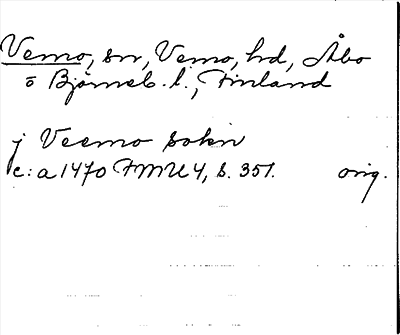 Vemo, sn, Vemo, hd, Åbo
o Björneb. l., Finland
j Veemo sokn
c: a 1470 FMU 4, s. 351. orig.